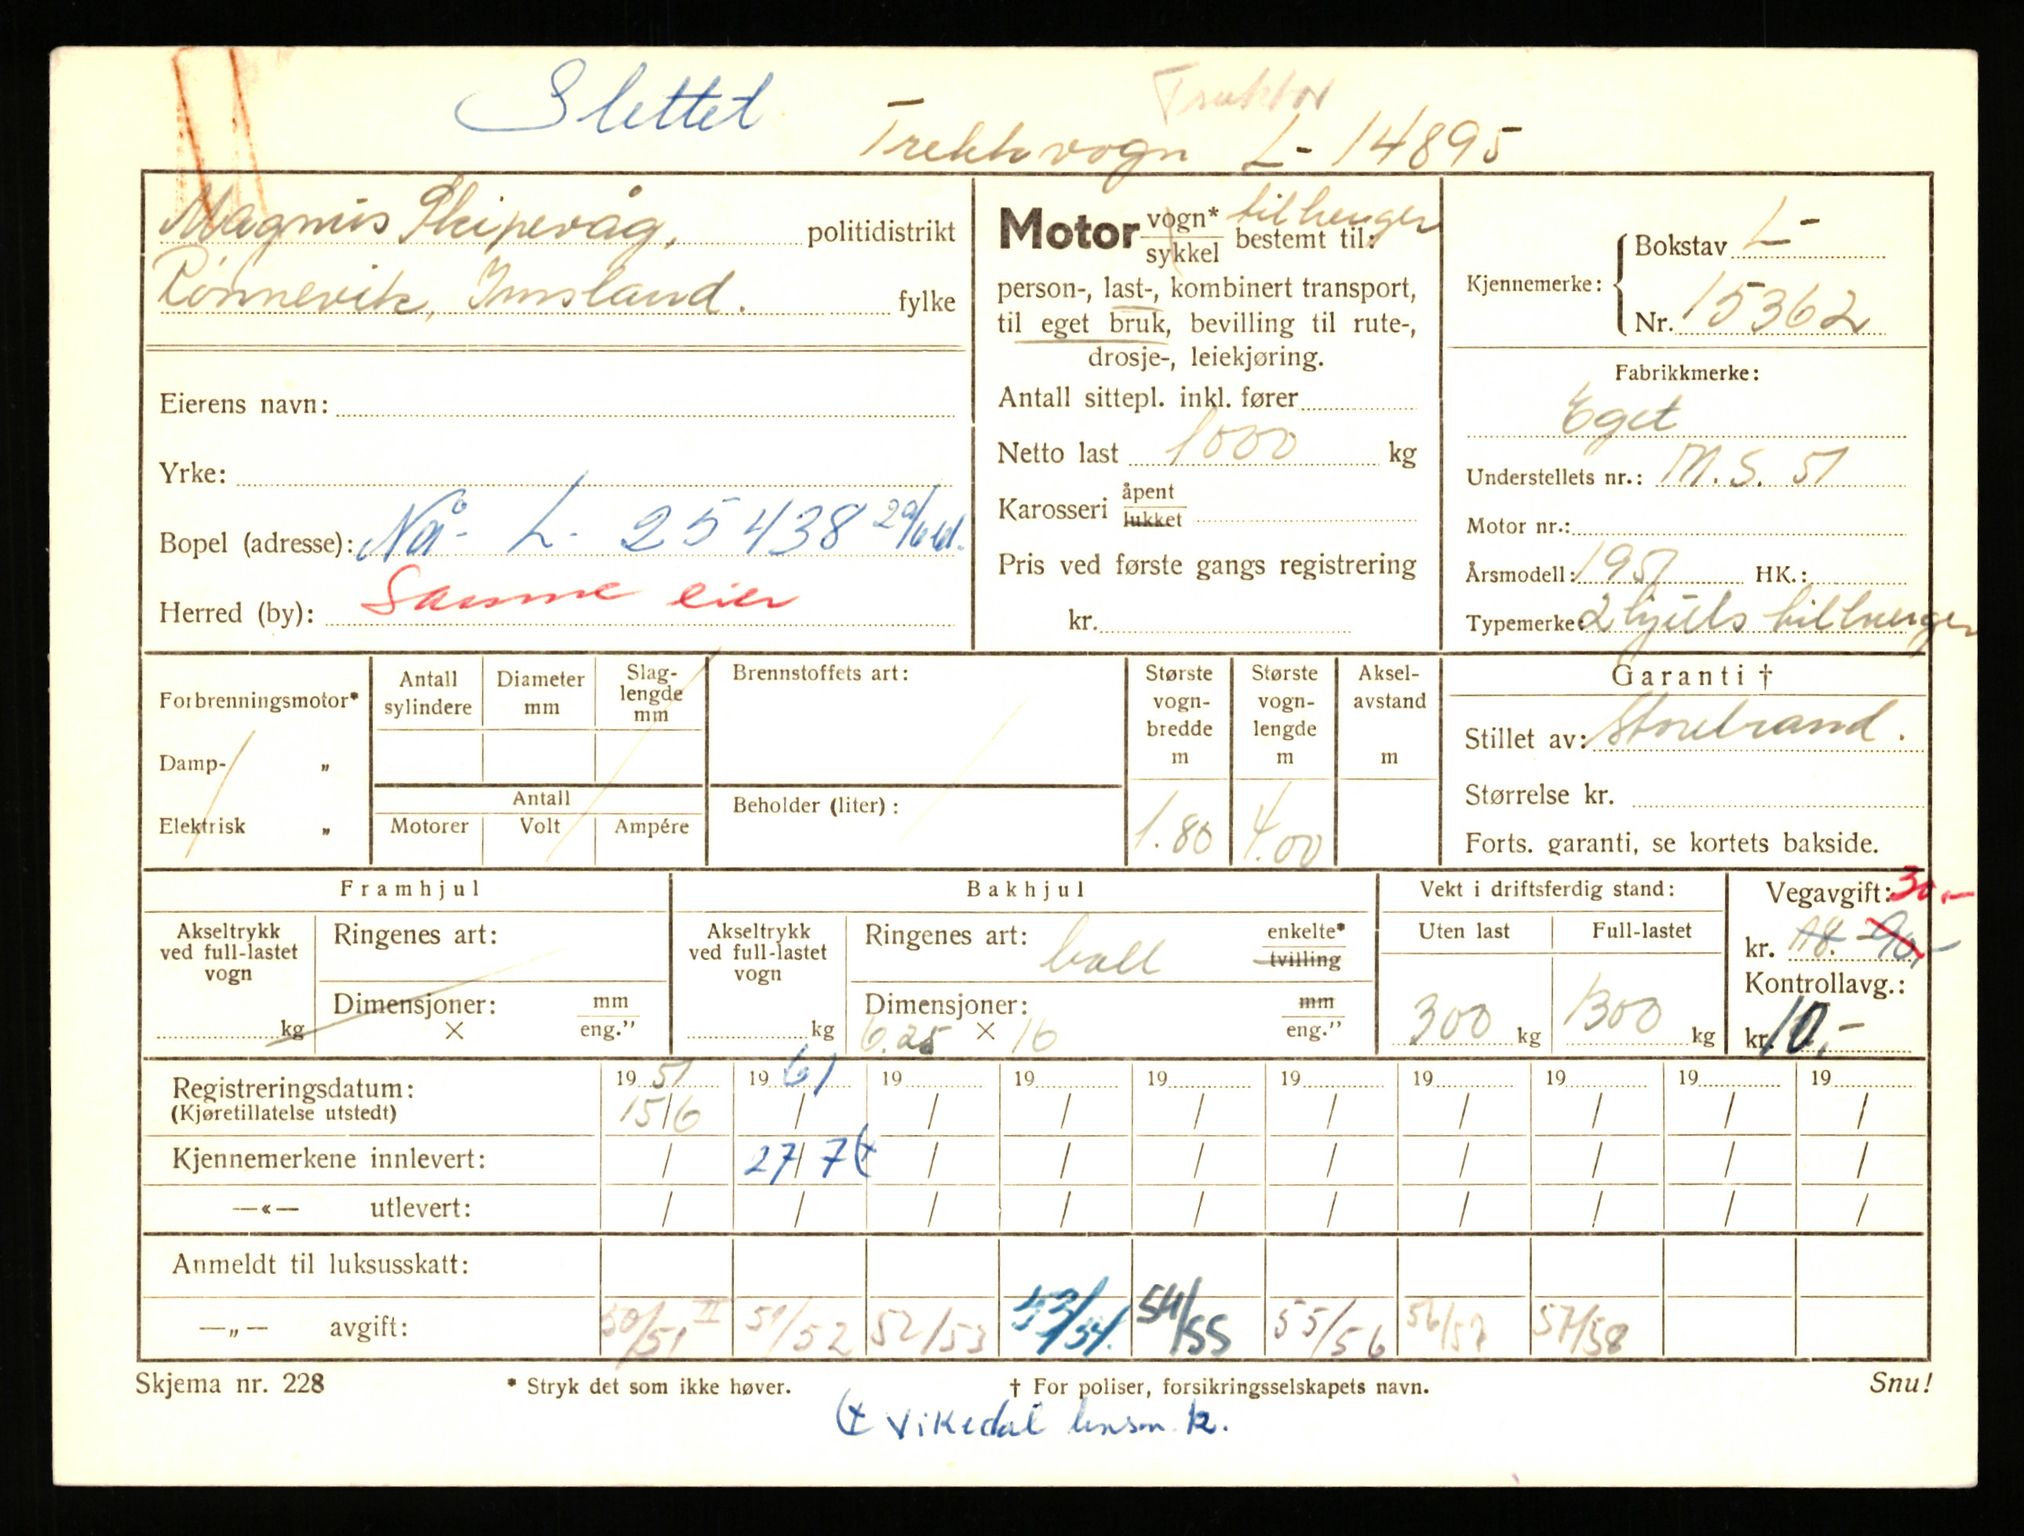 Slettet
Traktor
Trekkvogn L- 14895
Magnus Skipevåg, politidistrikt
Rønnevik, Imsland. fylke
Eierens navn:
Yrke:
Bopel (adresse): Nå- L- 25438 29/6 61.
Herred (by): Samme eier
Motor vogn* tilhenger
sykkel bestemt til:
person-, last-, kombinert transport,
til eget bruk, bevilling til rute-,
drosje-, leiekjøring.
Antall sittepl. inkl. fører
Netto last 1000 kg
Karosseri åpent
lukket
Pris ved første gangs registrering
kr.
Kjennemerke: Bokstav L-
Nr. 15362
Fabrikkmerke:
Eget
Understellets nr.: M.S. 51
Motor nr.:
Årsmodell: 1951 HK.:
Typemerke: 2 hjuls tilhenger
Forbrenningsmotor*
Damp- „
Elektrisk „
Antall sylindere
Diameter mm
Slag-lengde mm
Antall
Motorer Volt Ampére
Brennstoffets art:
Beholder (liter):
Største vogn-bredde m
1.80
Største vogn-lengde m
4.00
Aksel-avstand m
Garanti †
Stillet av: Storebrand.
Størrelse kr.
Forts. garanti, se kortets bakside.
Framhjul
Akseltrykk ved full-lastet vogn
kg
Ringenes art:
Dimensjoner: mm
× eng.”
Bakhjul
Akseltrykk ved full-lastet vogn
kg
Ringenes art: ball enkelte*
tvilling
Dimensjoner: mm
6.25 × 16 eng.”
Vekt i driftsferdig stand:
Uten last Full-lastet
300 kg 1300 kg
Vegavgift: 30,-
kr. 18.- 90,-
Kontrollavg.:
kr. 10,-
Registreringsdatum: 19 51 19 61 19 19 19 19 19 19 19 19
(Kjøretillatelse utstedt) 15/6 / / / / / / / / /
Kjennemerkene innlevert: / 27/7 (+ / / / / / / / /
—«— utlevert: / / / / / / / / / /
Anmeldt til luksusskatt:
—„— avgift: 50/51 II 51/52 52/53 53/54. 54/55 55/56 56/57 57/58
Skjema nr. 228 * Stryk det som ikke høver. † For poliser, forsikringsselskapets navn. Snu!
(+ Vikedal lensm. k.